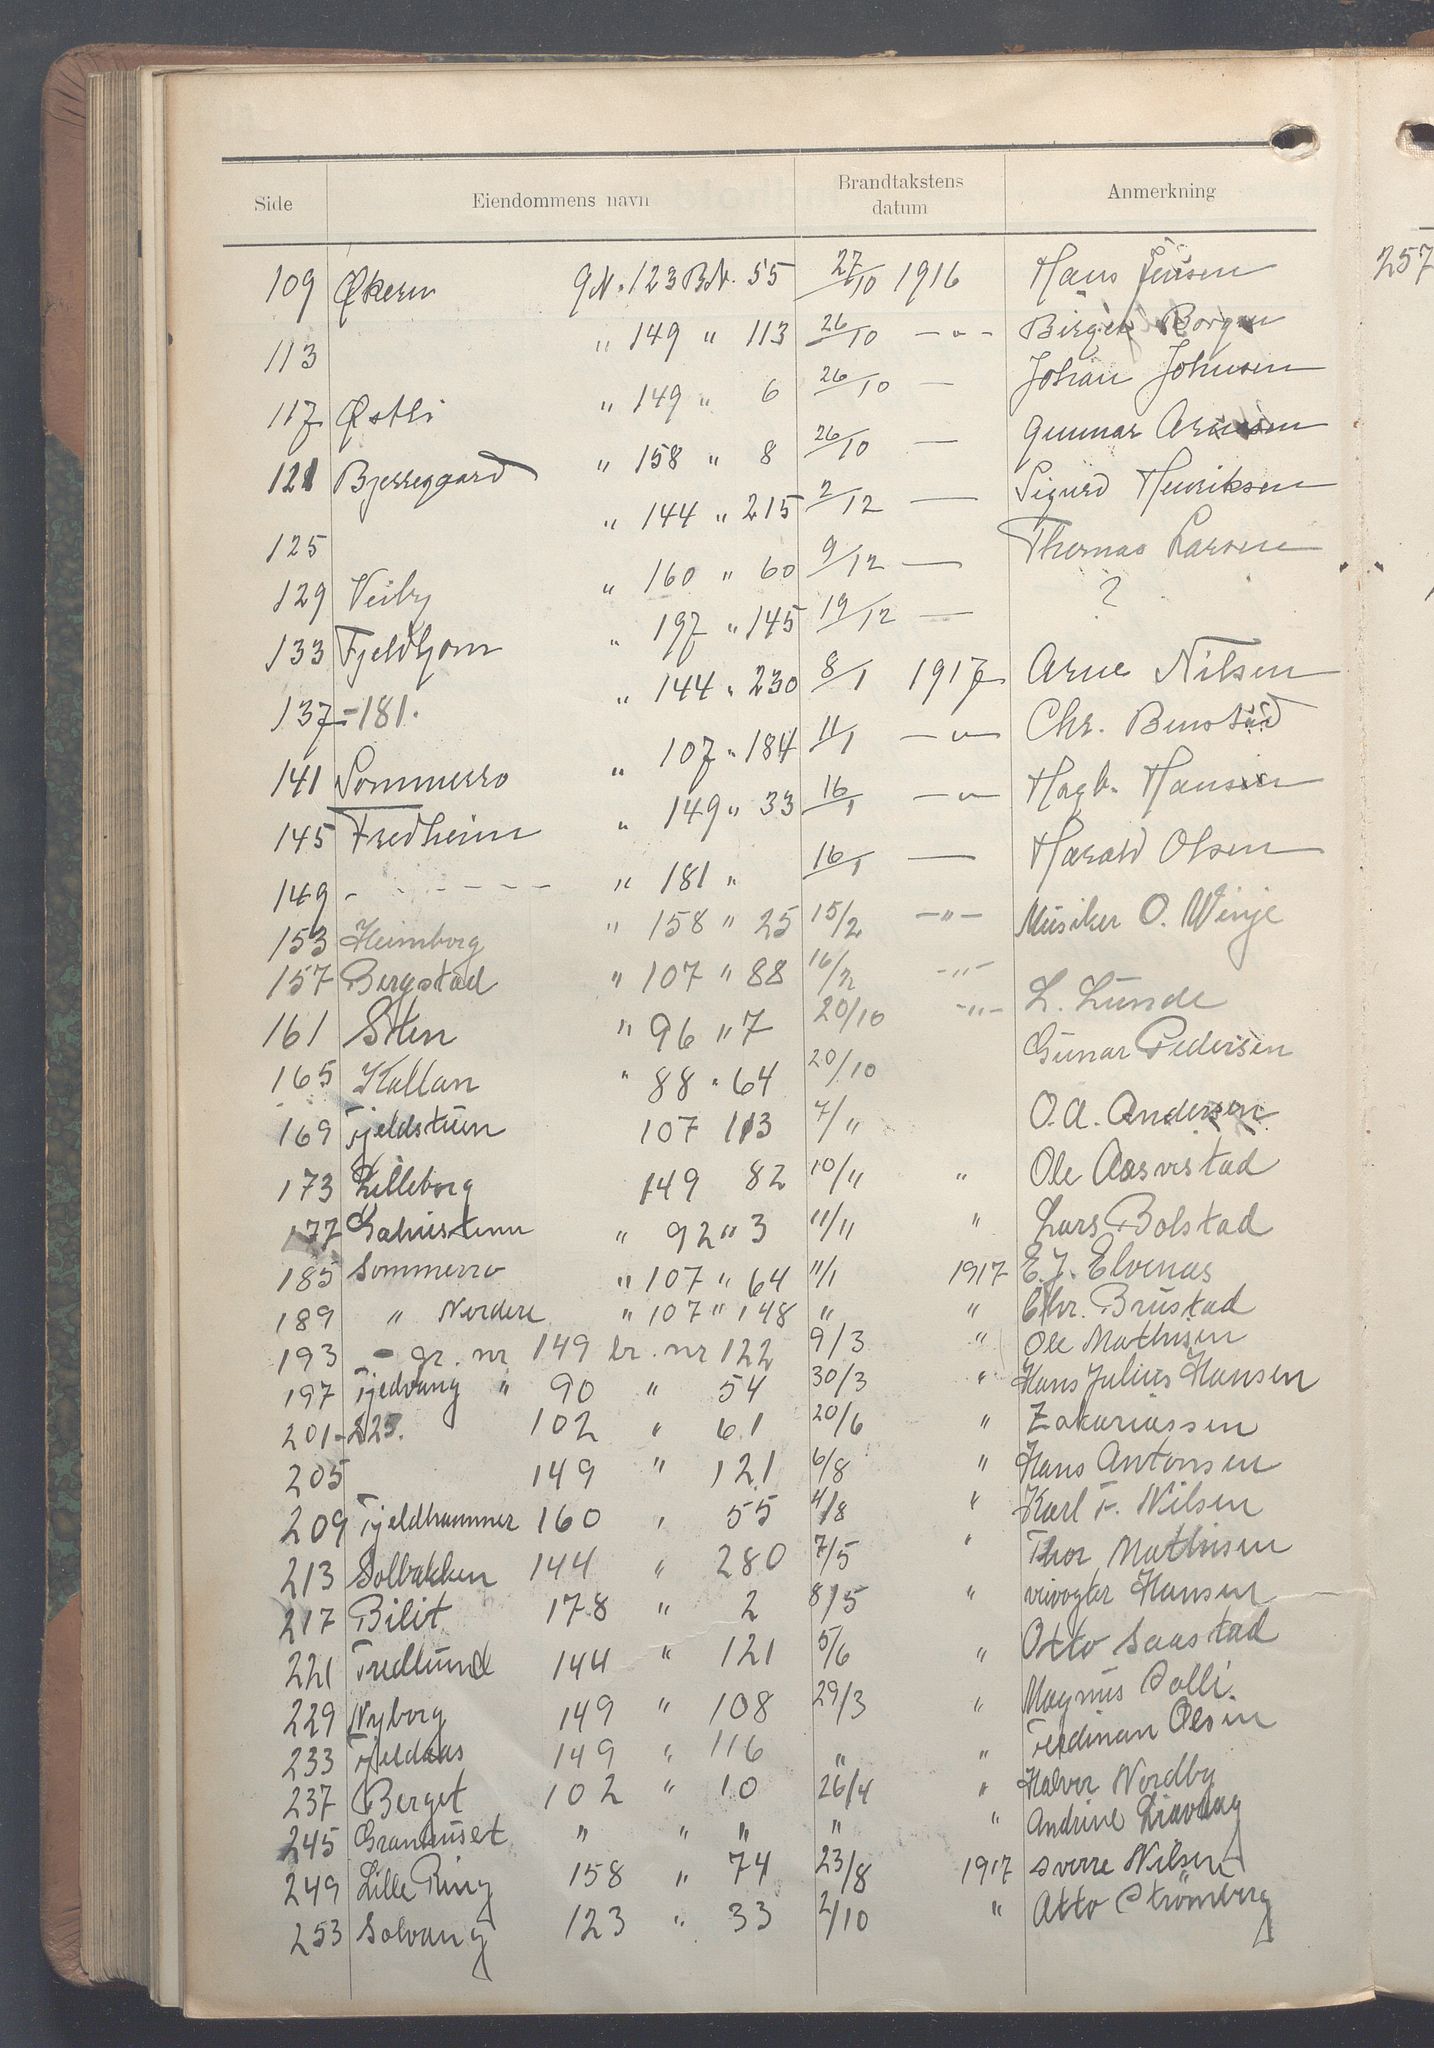 Side Eiendommens navn Brandtakstens datum Anmerkning
109 Økern GN. 123 BN. 55 27/10 1916 Hans Jensen 257
113 " 149 " 113 26/10 -"- Birger Borgen
117 Østli " 149 " 6 26/10 — Johan Johnsen
121 Bjerregaard " 158 " 8 26/10 — Gunnar Arnesen
125 " 144 " 215 2/12 — Sigurd Henriksen
129 Veiby " 160 " 60 9/12 — Thomas Larsen
133 Fjeldhjom " 197 " 145 19/12 — ?
137-181. " 144 " 230 8/1 1917 Arne Nilsen
141 Sommerro " 107 " 184 11/1 -"- Chr.
145 Fredheim " 149 " 33 16/1 -"- Hagb. Hansen
149 - - - - - - " 181 " 16/1 — Harald Olsen
153 Heimborg " 158 " 25 15/2 -"- Musiker O. Winje
157 Bergstad " 107 " 88 16/2 -"-
161 Sten " 96 " 7 20/10 -"- L. Lunde
165 Kallan " 88 " 64 20/10 Gunar Pedersen
169 Fjeldstuen 107 113 7/11 O.A. Andersen
173 Lilleborg 149 82 10/11 " Ole Aasvestad
177 " 92 " 3 11/11 " Lars Bolstad
185 Sommerro " 107 " 64 11/1 1917 E.J. Elvenas
189 " Nordere " 107 " 148 " " Chr. Brustad
193 - gr. nr 149 br. nr 122 9/3 " Ole Mathisen
197 Fjedvang " 90 " 54 30/3 " Hans Julius Hansen
201-225. 102 " 61 20/6 " Zakariassen
205 149 " 121 6/8 " Hans Antonsen
209 Fjeldhammer 160 " 55 4/8 " Karl F. Nilsen
213 Solbakken 144 " 280 7/5 " Thor Mathisen
217 Bilit 178 " 2 8/5 " Hansen
221 Fredlund 144 " 121 5/6 " Otto Saastad
229 Nyborg 149 " 108 29/3 " Magnus Solli.
233 Fjeldaas 149 " 116 " " Ferdinan Olsen
237 Berget 102 " 10 26/4 " Halvor Nordby
245 Granhuset " " " " " Andrine
249 Lille Ring 158 " 74 23/8 1917 Sverre Nilsen
253 Solvang 123 " 33 2/10 " Otto Strømberg